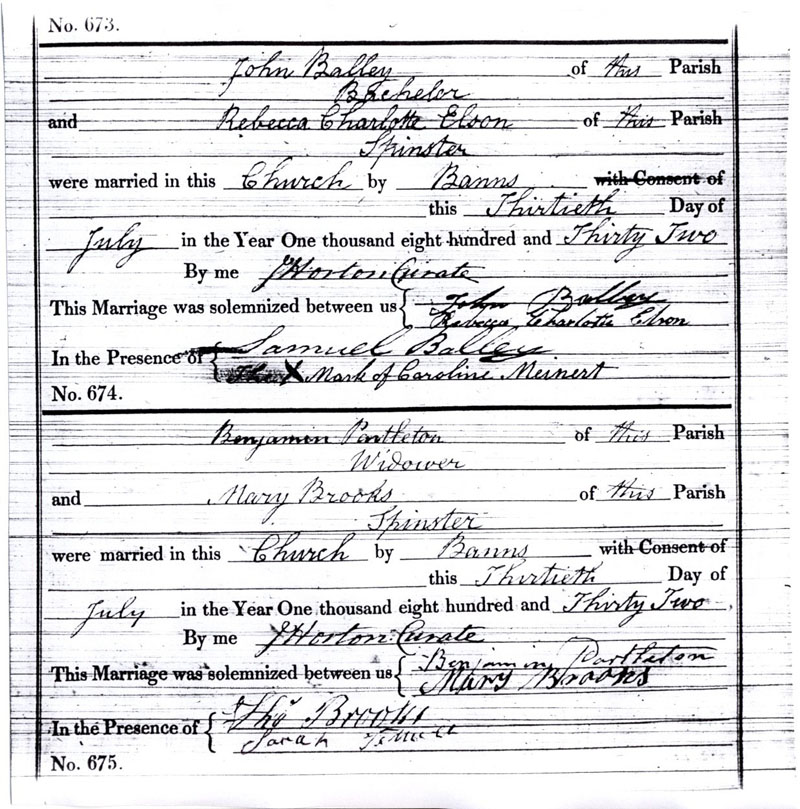 No. 673.
John Balley of this Parish
Bachelor
and Rebecca Charlotte Elson of this Parish
Spinster
were married in this Church by Banns with Consent of
this Thirtieth Day of
July in the Year One thousand eight hundred and Thirty Two
By me J Horton Curate
This Marriage was solemnized between us { John Balley
Rebecca Charlotte Elson
In the Presence of { Samuel Balley
The X Mark of Caroline Meinert
No. 674.
Benjamin Partleton of this Parish
Widower
and Mary Brooks of this Parish
Spinster
were married in this Church by Banns with Consent of
this Thirtieth Day of
July in the Year One thousand eight hundred and Thirty Two
By me J Horton Curate
This Marriage was solemnized between us { Benjamin Partleton
Mary Brooks
In the Presence of { Thos Brooks
Sarah
No. 675.